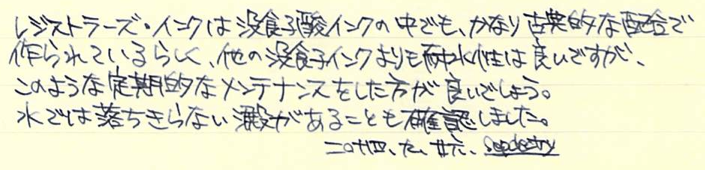 レジストラーズ・インクは没食子酸インクの中でも、かなり古典的な配合で
作られているらしく、他の没食子インクよりも耐水性は良いですが、
このような定期的なメンテナンスをした方が良いでしょう。
水では落ちきらない澱があることも確認しました。
二〇廿四、九、廿六、